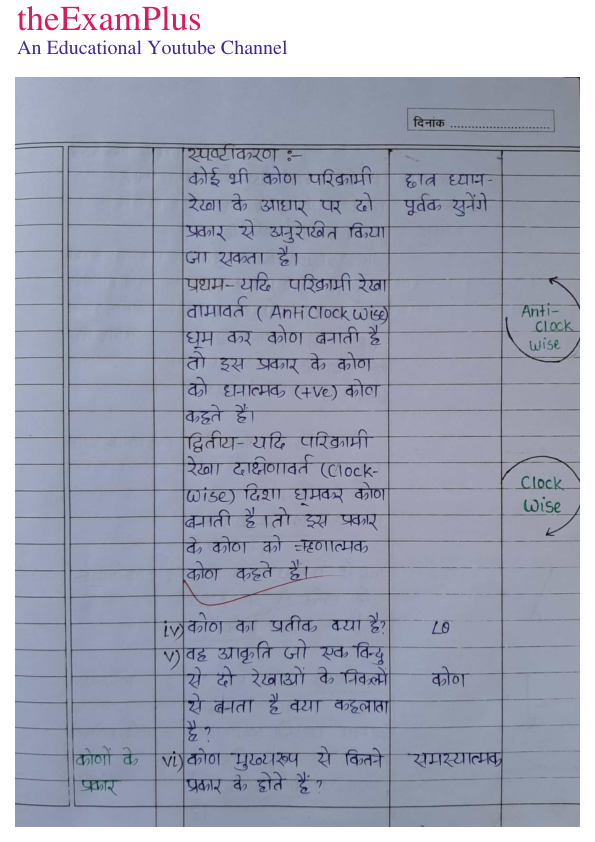 theExamPlus
An Educational Youtube Channel
दिनांक ............................
स्पष्टीकरण :-
कोई भी कोण परिक्रामी
रेखा के आधार पर दो
प्रकार से अनुरेखित किया
जा सकता है।
प्रथम- यदि परिक्रामी रेखा
वामावर्त ( Anti Clock Wise)
घूम कर कोण बनाती है
तो इस प्रकार के कोण
को धनात्मक (+ve) कोण
कहते है।
द्वितीय- यदि परिक्रामी
रेखा दाक्षिणावर्त (Clock-
Wise) दिशा घूमकर कोण
बनाती है। तो इस प्रकार
के कोण को ऋणात्मक
कोण कहते है।
छात्र ध्यान-
पूर्वक सुनेंगे
Anti-
Clock
Wise
Clock
Wise
iv) कोण का प्रतीक क्या है? ∠θ
v) वह आकृति जो एक बिन्दु
से दो रेखाओं के निकलने कोण
से बनता है क्या कहलाता
है ?
कोणों के vi) कोण मुख्यरूप से कितने समस्यात्मक
प्रकार प्रकार के होते हैं ?